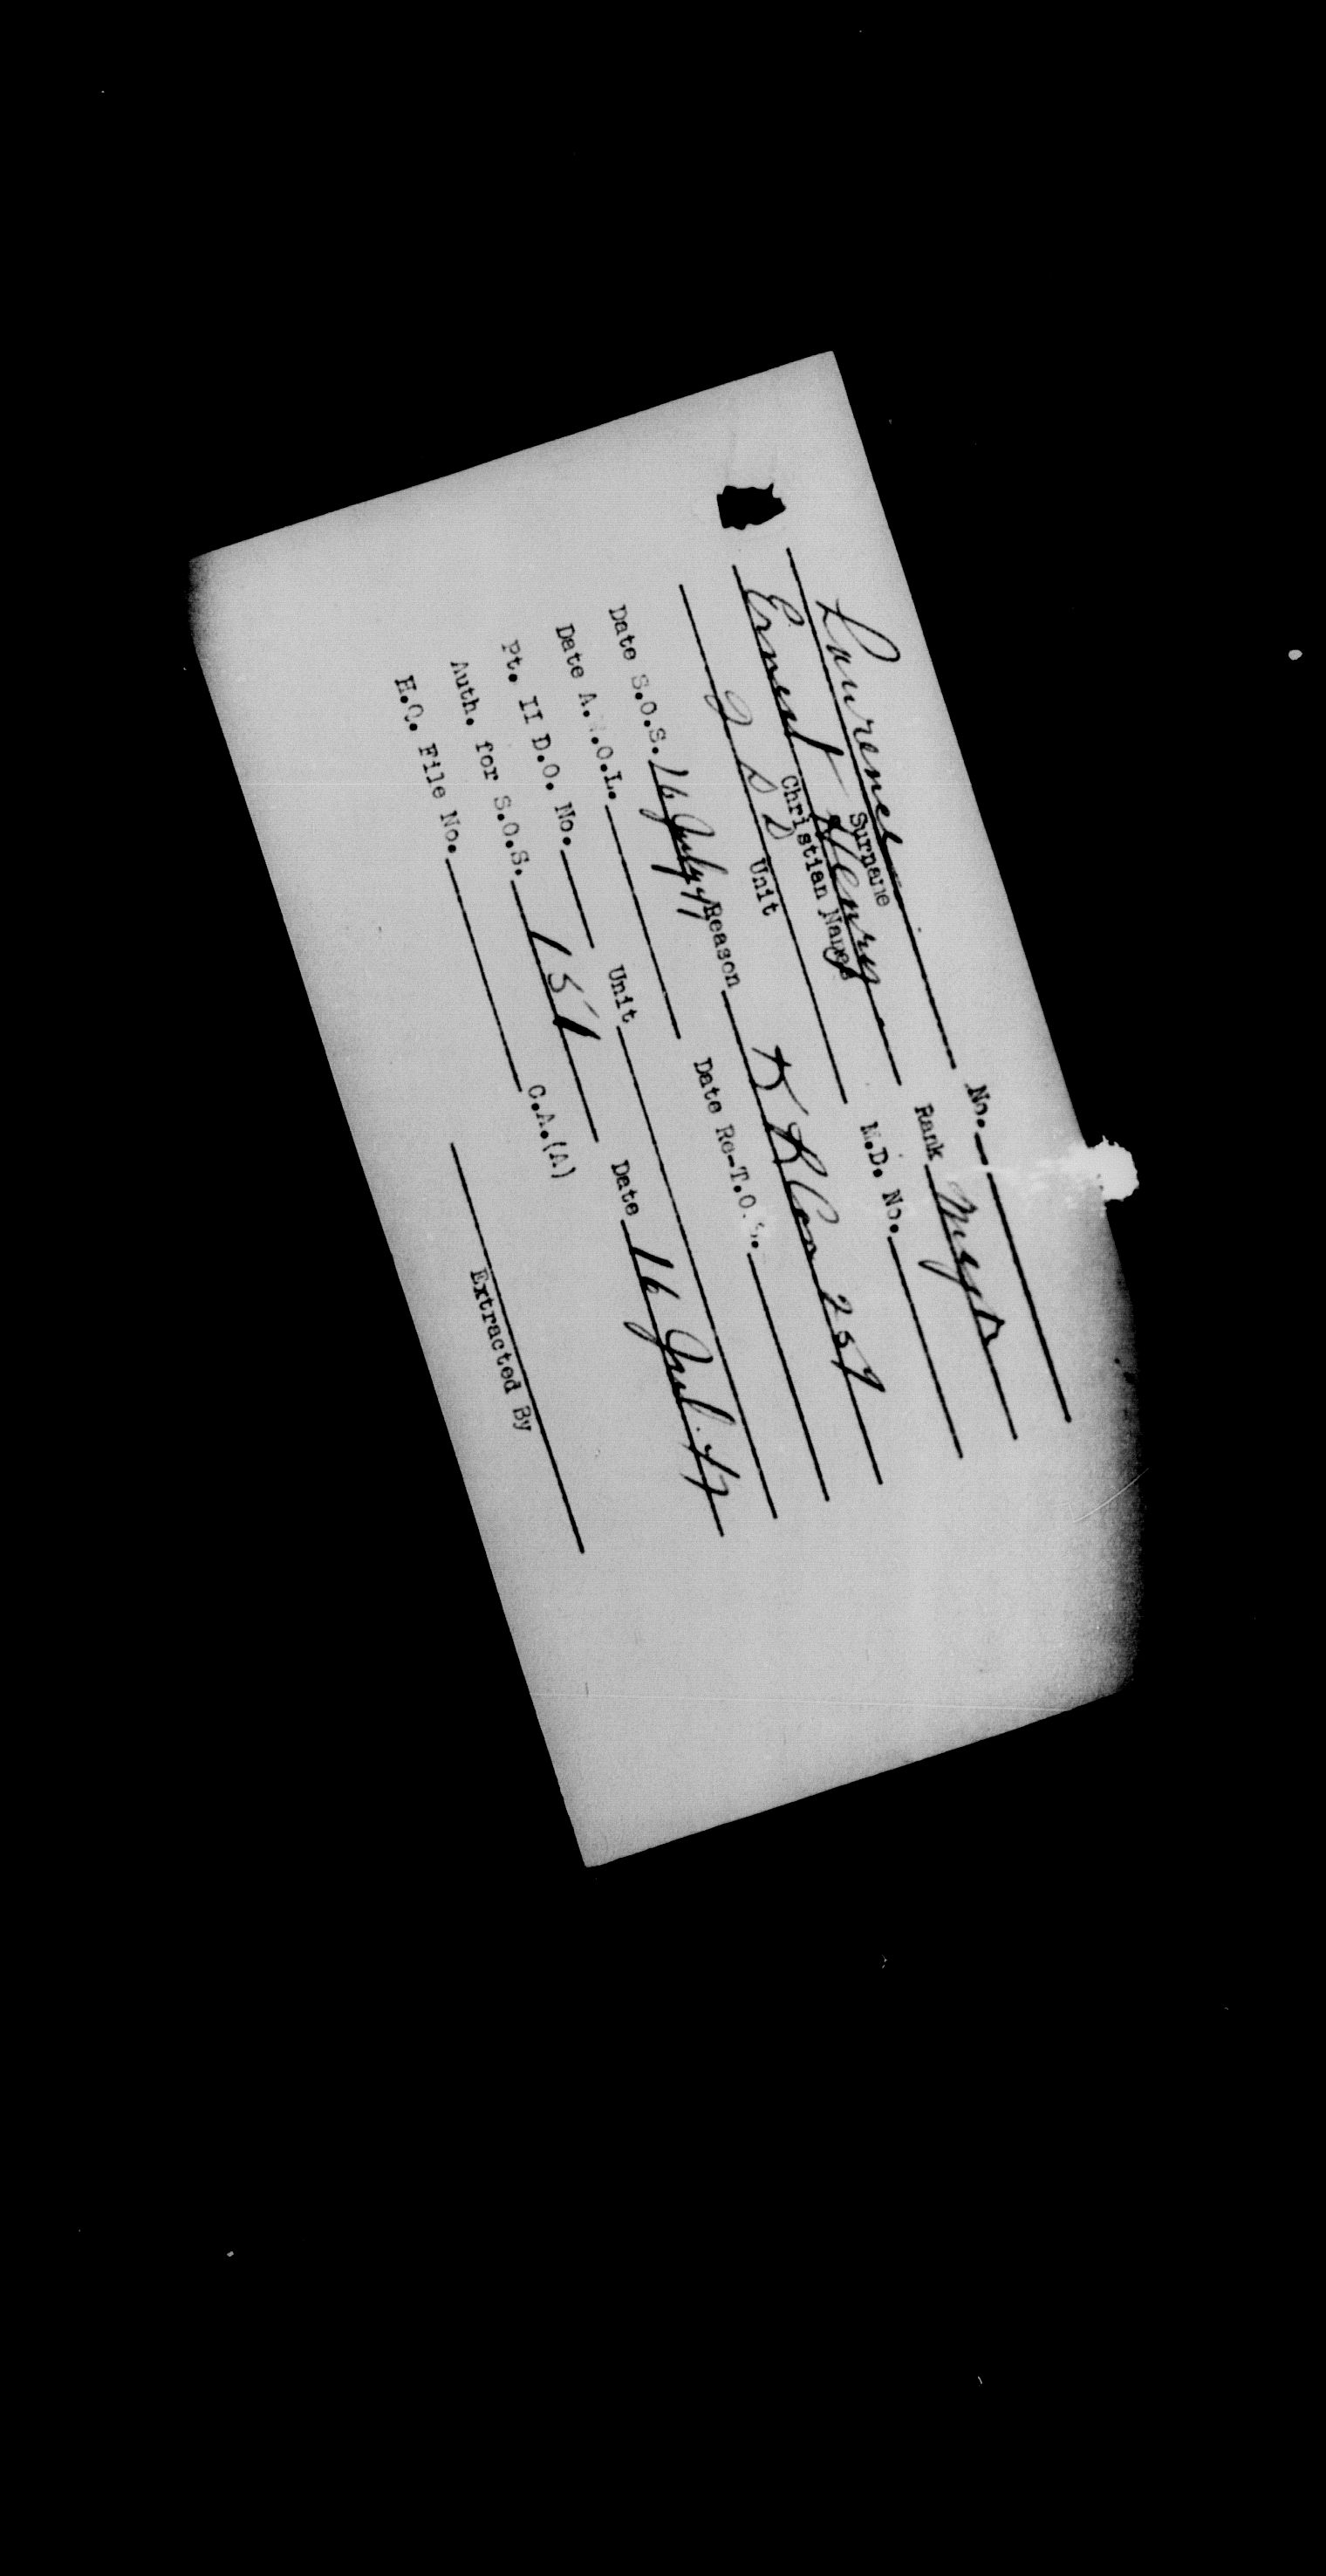 Lawrence No.
Surname
Ernest Henry Rank
Christian Names
2 D D M.D. No.
Unit
Date S.O.S. 16 July 47 Reason K R Can 259
Date A.W.O.L. Date Re-T.O.S.
Pt. II D.O. No. Unit
Auth. for S.O.S. 151 Date 16 Jul. 47
H.Q. File No. C.A.(A)
Extracted By